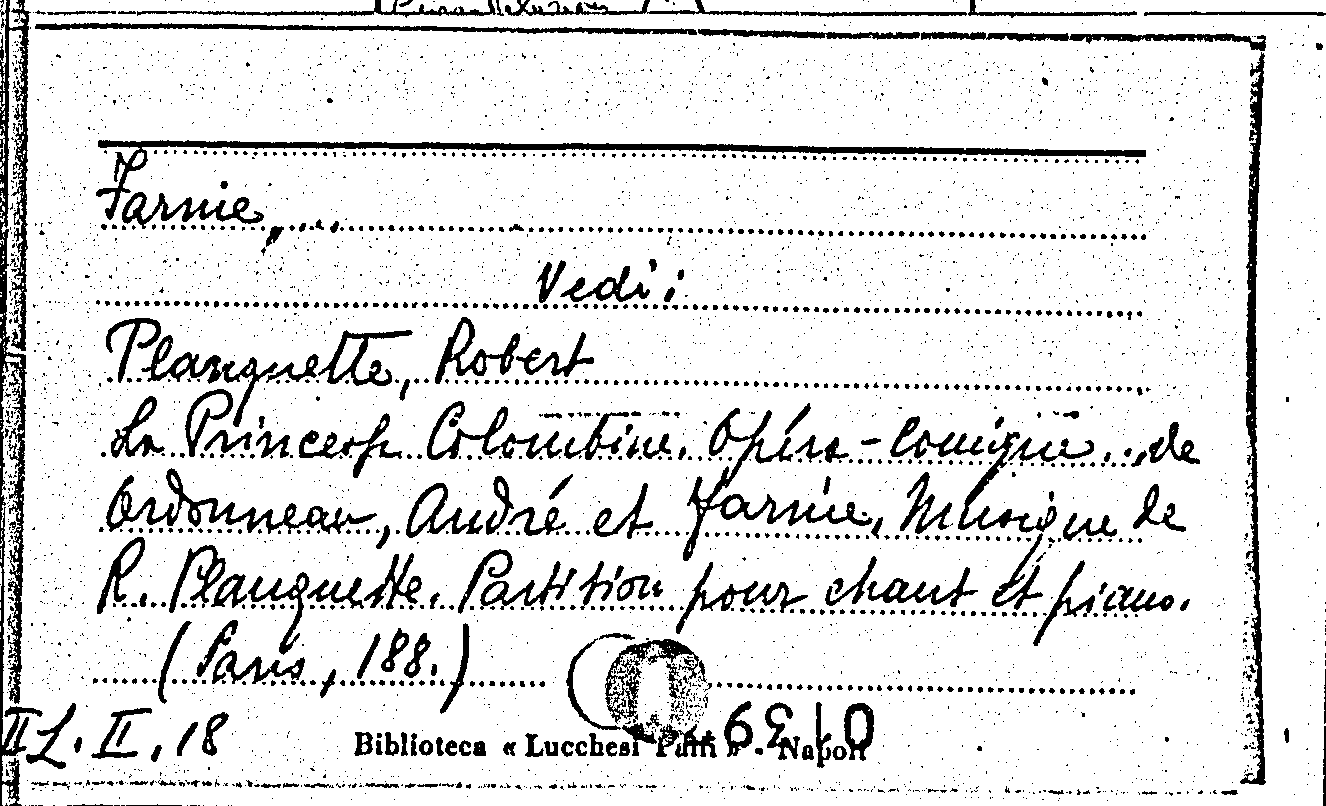 Farnie, ...
Vedi:
Planquette, Robert
La Princesse Colombine. Opéra-comique... de
Ordonneau, André et Farnie, Musique de
R. Planquette. Partition pour chant et piano.
(Paris, 188.)
II L. II. 18
Biblioteca « Lucchesi Palli » - Napoli